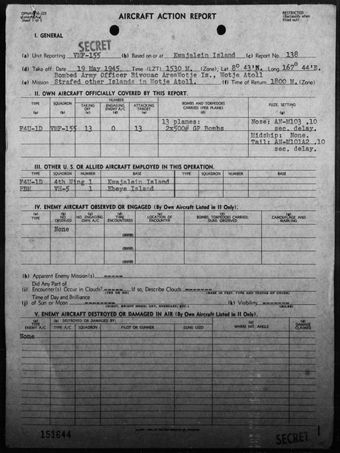 AIRCRAFT ACTION REPORT
RESTRICTED
I. GENERAL
SECRET
(a) Unit Reporting VMF-155 (b) Based on or at Kwajalein Island (c) Report No. 138
(d) Take off: Date 19 May 1945 Time (LZT) 1530 M. (Zone); Lat 8° 43'N. Long. 167° 44'E.
Bombed Army Officer Bivouac Area Wotje Is., Wotje Atoll
(e) Mission Strafed other Islands in Wotje Atoll (f) Time of Return 1800 M. (Zone)
II. OWN AIRCRAFT OFFICIALLY COVERED BY THIS REPORT.
TYPE SQUADRON NUMBER TAKING OFF ENGAGING ENEMY A/C ATTACKING TARGET BOMBS AND TORPEDOES CARRIED (PER PLANE) FUZE, SETTING
13 planes: Nose: AN-M103 .10
F4U-1D VMF-155 13 0 13 2x500# GP Bombs sec. delay.
Midship: None.
Tail: AN-M101A2 .10
sec. delay.
III. OTHER U. S. OR ALLIED AIRCRAFT EMPLOYED IN THIS OPERATION.
TYPE SQUADRON NUMBER BASE TYPE SQUADRON NUMBER BASE
F4U-1D 4th Wing 1 Kwajalein Island
PBM VH-5 1 Ebeye Island
IV. ENEMY AIRCRAFT OBSERVED OR ENGAGED (By Own Aircraft Listed in II Only).
None
(h) Apparent Enemy Mission(s)
Did Any Part of
(i) Encounter(s) Occur in Clouds? If so, Describe Clouds
Time of Day and Brilliance
(j) of Sun or Moon (k) Visibility
V. ENEMY AIRCRAFT DESTROYED OR DAMAGED IN AIR (By Own Aircraft Listed in II Only).
TYPE ENEMY A/C DESTROYED OR DAMAGED BY: TYPE A/C SQUADRON PILOT OR GUNNER GUNS USED WHERE HIT, ANGLE DAMAGE CLAIMED
None
151644
SECRET